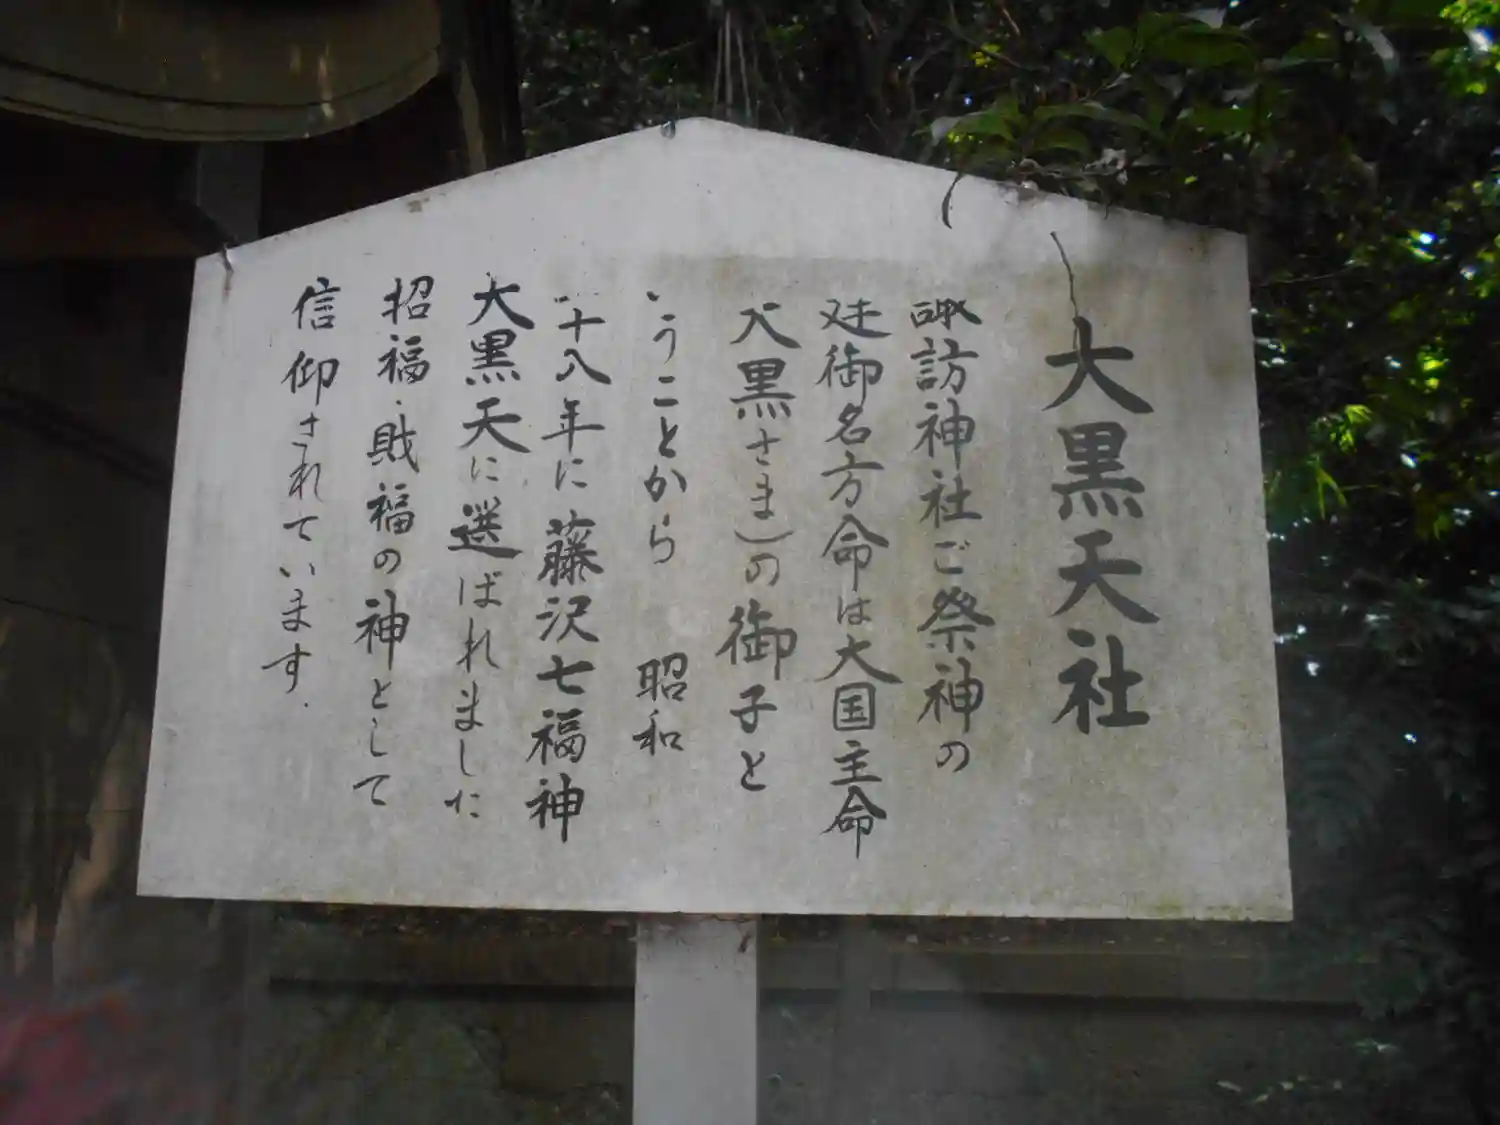 大黒天社
諏訪神社ご祭神の
建御名方命は大国主命
大黒さま)の御子と
いうことから 昭和
二十八年に藤沢七福神
大黒天に選ばれました
招福・財福の神として
信仰されています.